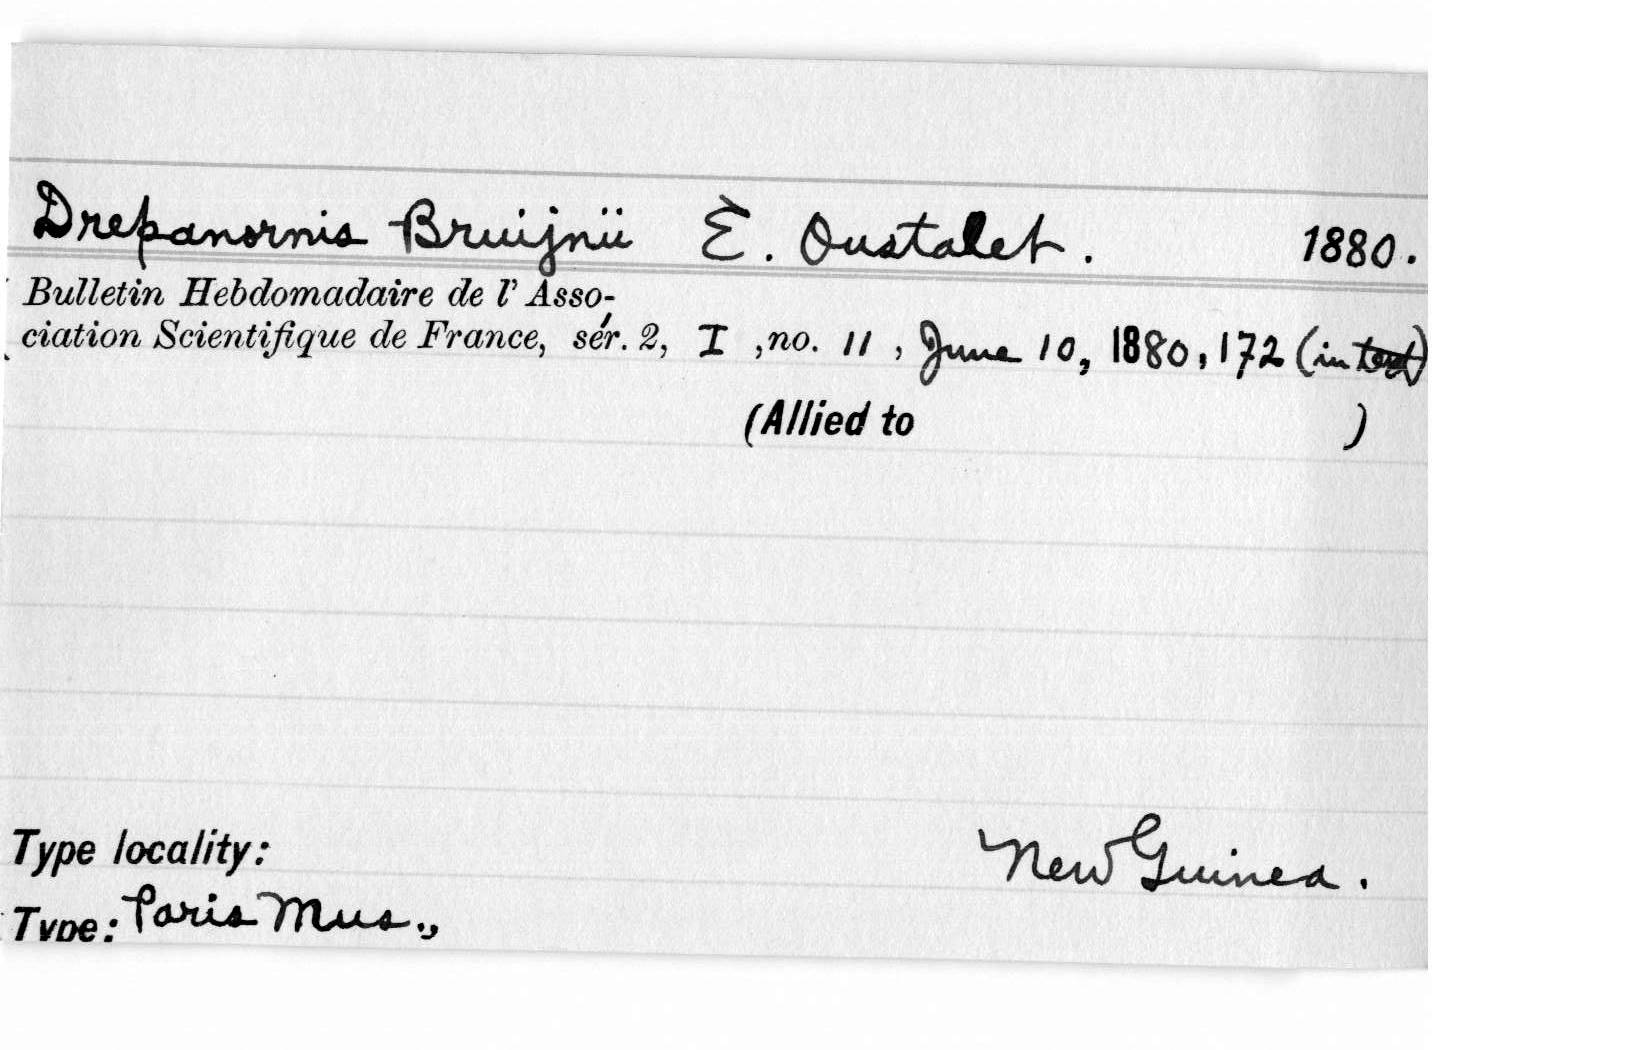 Drepanornis Bruijnii E. Oustalet. 1880.
Bulletin Hebdomadaire de l' Asso-
ciation Scientifique de France, sér. 2, I , no. 11 , June 10, 1880, 172 (in text)
(Allied to )
Type locality: New Guinea.
Type: Paris Mus.,